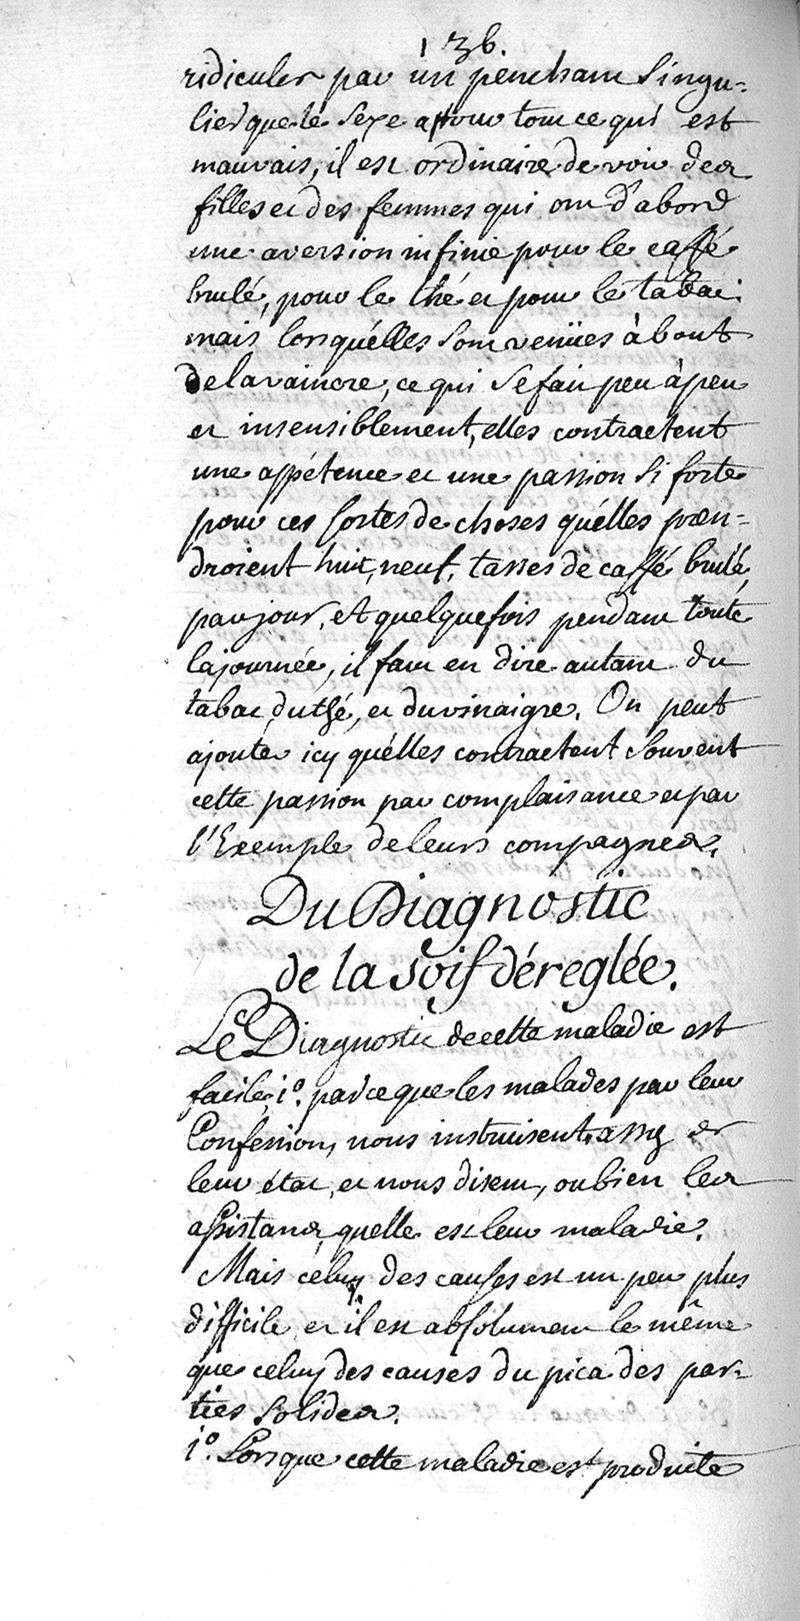 136.
ridicules par un penchant singu-
lier que le sexe a pour tout ce qui est
mauvais, il est ordinaire de voir des
filles et des femmes qui ont d'abord
une aversion infinie pour le caffé
brulé, pour le thé et pour le tabac:
mais lorsqu'élles sont venües à bout
de la vaincre, ce qui se fait peu à peu
et insensiblement, elles contractent
une appétence et une passion si forte
pour ces sortes de choses qu'élles pren-
droient huit, neuf, tasses de caffé brulé
par jour, et quelquefois pendant toute
la journée, il faut en dire autant du
tabac, du thé, et du vinaigre. On peut
ajouter icy qu'élles contractent souvent
cette passion par complaisance et par
l'Exemple de leurs compagnes.
Du Diagnostic
de la soif déreglée.
Le Diagnostic de cette maladie est
facile, 1°. parce que les malades par leur
Confession, nous instruisent de
leur état, et nous disent, ou bien les
assistans, quelle est leur maladie.
Mais celuy des causes est un peu plus
difficile, et il est absolument le même
que celuy des causes du pica des par-
ties solides.
1°. Lorsque cette maladie est produite